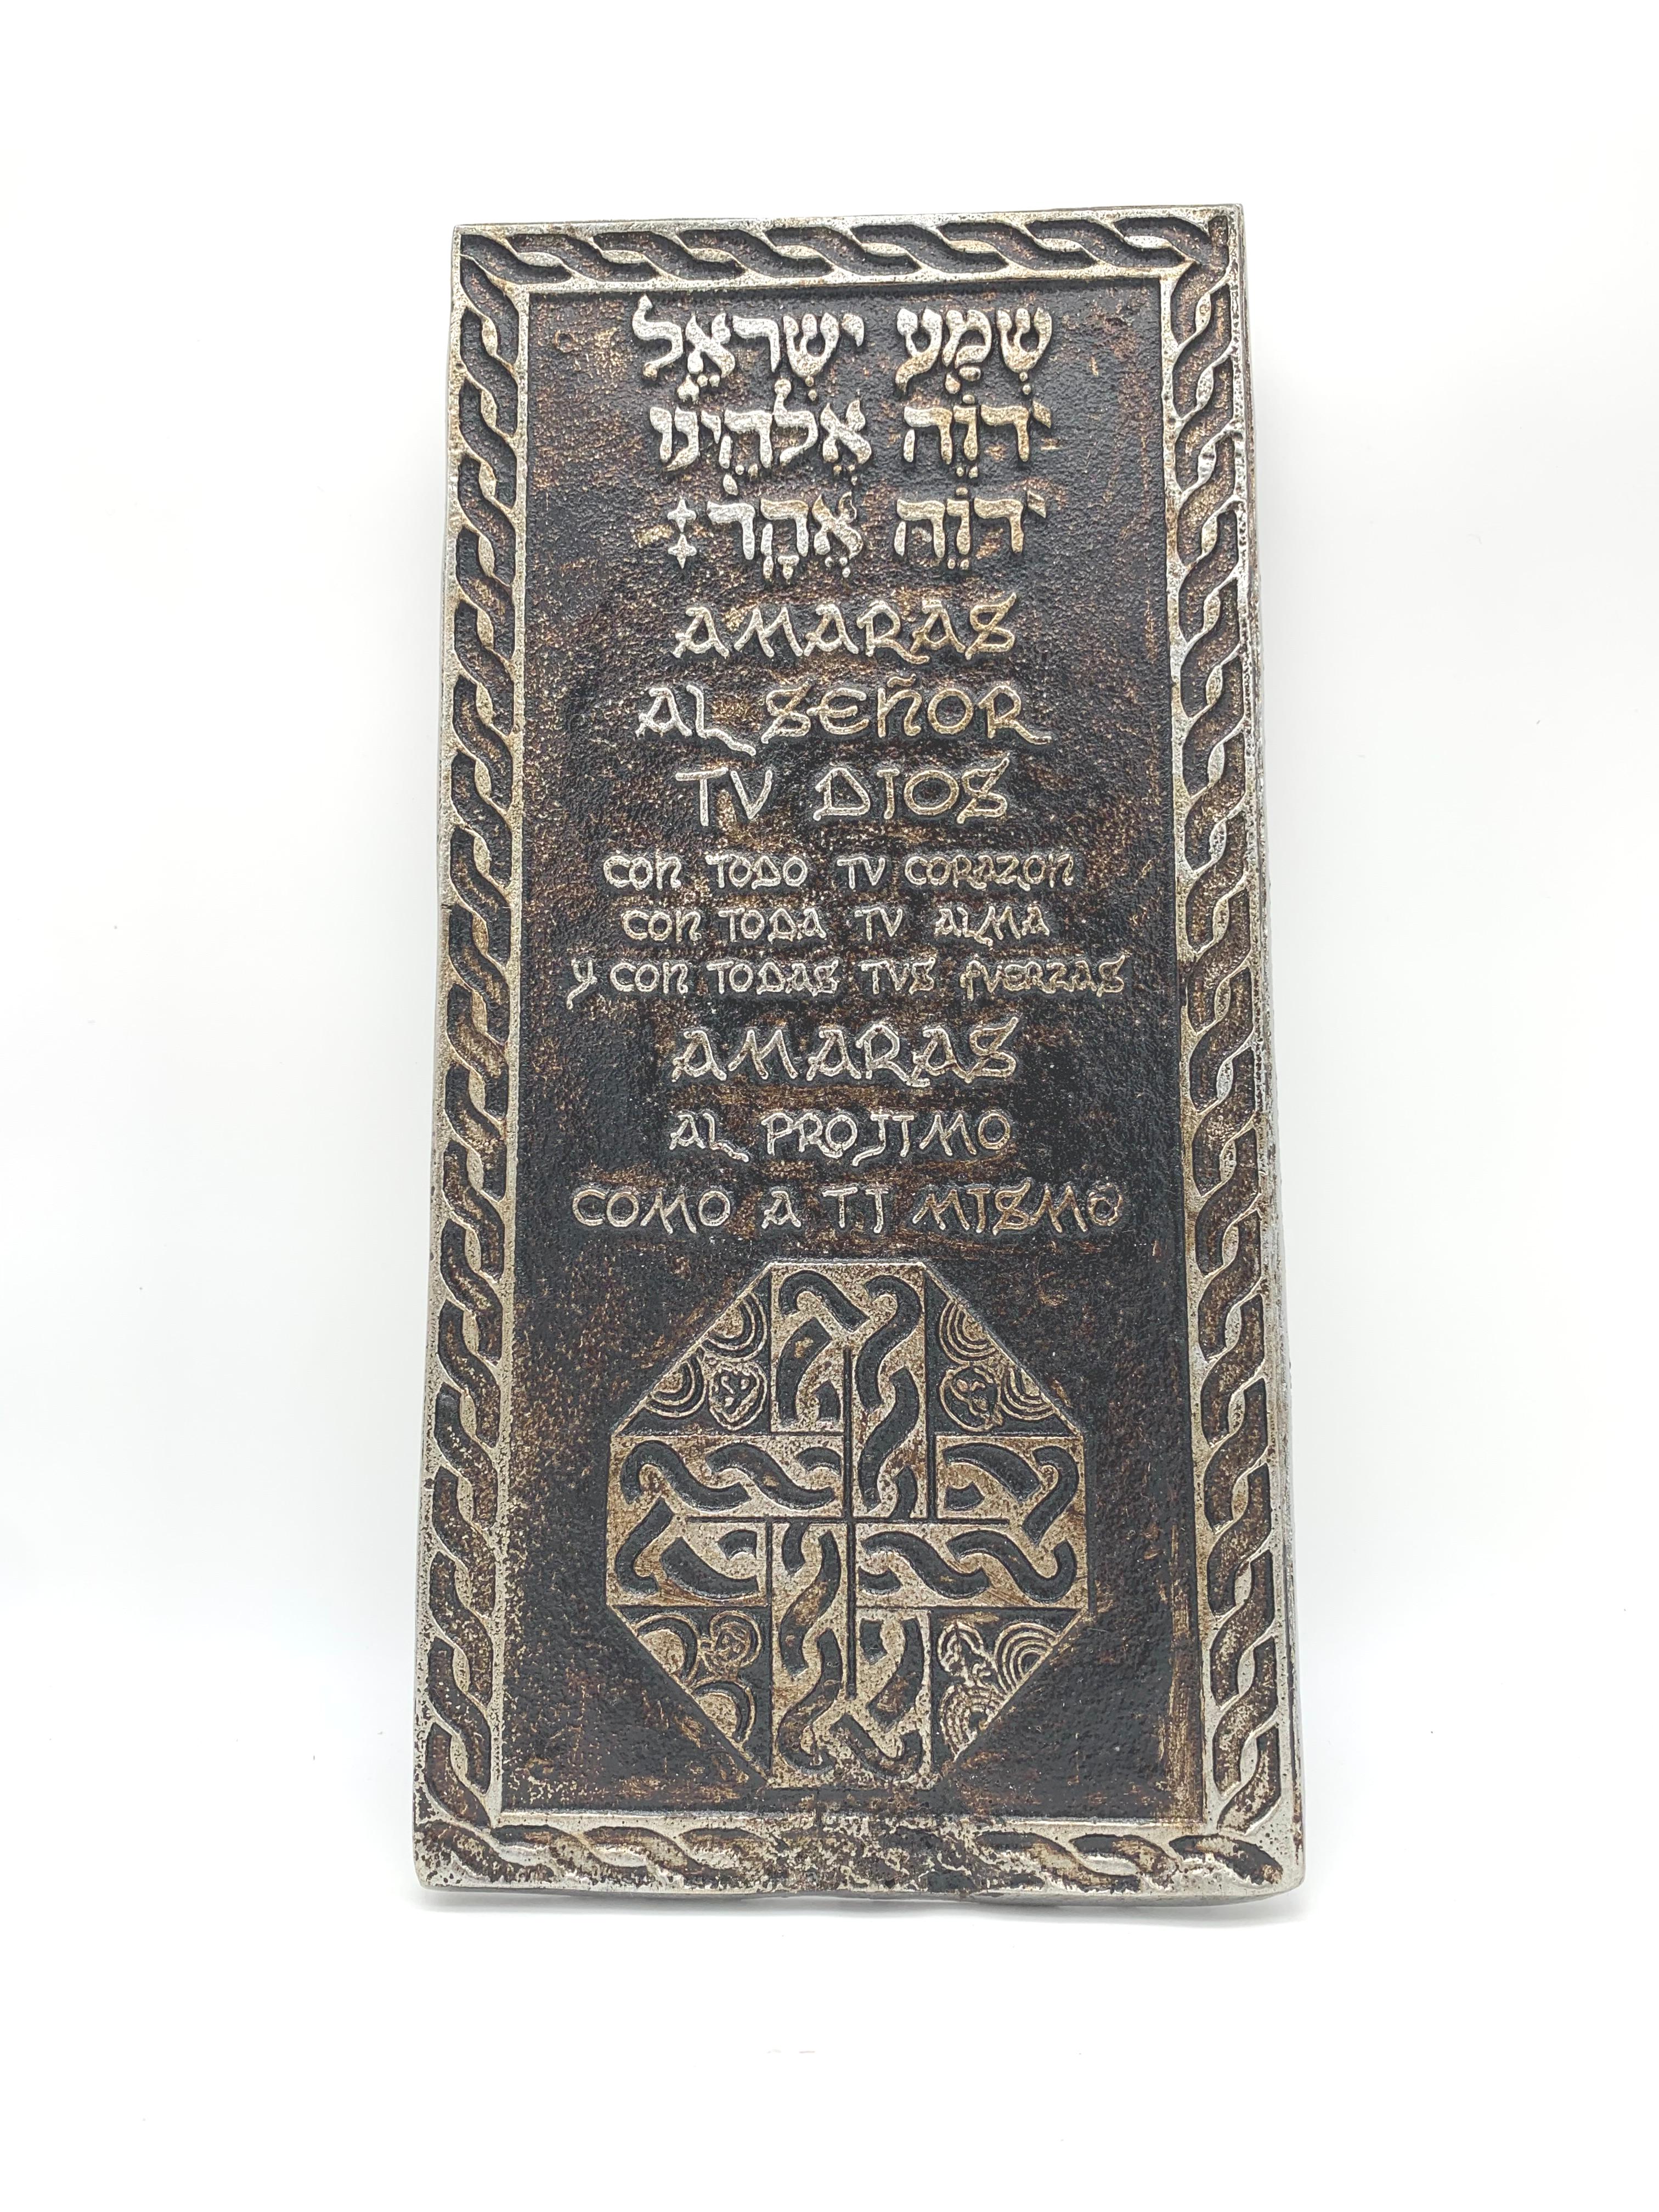 שְׁמַע יִשְׂרָאֵל
יְהוָֹה אֱלֹהֵינוּ
יְהוָֹה אֶחָד׃
AMARAS
AL SEÑOR
TV DIOS
CON TODO TV CORAZON
CON TODA TV ALMA
Y CON TODAS TVS FVERZAS
AMARAS
AL PROJIMO
COMO A TI MISMO